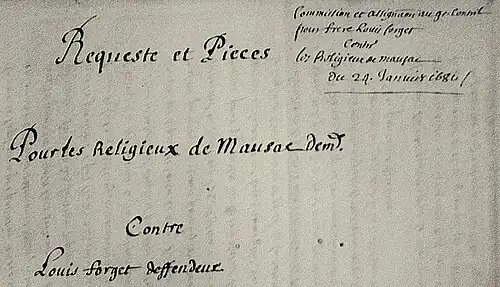 Requeste et Pieces
Commission et assignaon au gd Conseil
pour frere Louis forget
Contre
les Religieux de mausac
du 24 Janvier 1684
Pour les Religieux de Mausac Demdrs.
Contre
Louis forget deffendeur